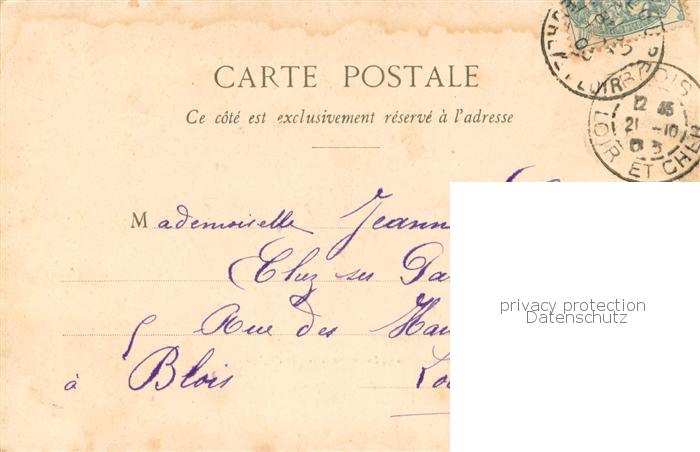 CARTE POSTALE
Ce côté est exclusivement réservé à l'adresse
BLOIS
12 45
21 -10
03
LOIR ET CHER
Mademoiselle Jeann
Chez ses Pa
Rue des Hau
à Blois Loi
privacy protection
Datenschutz